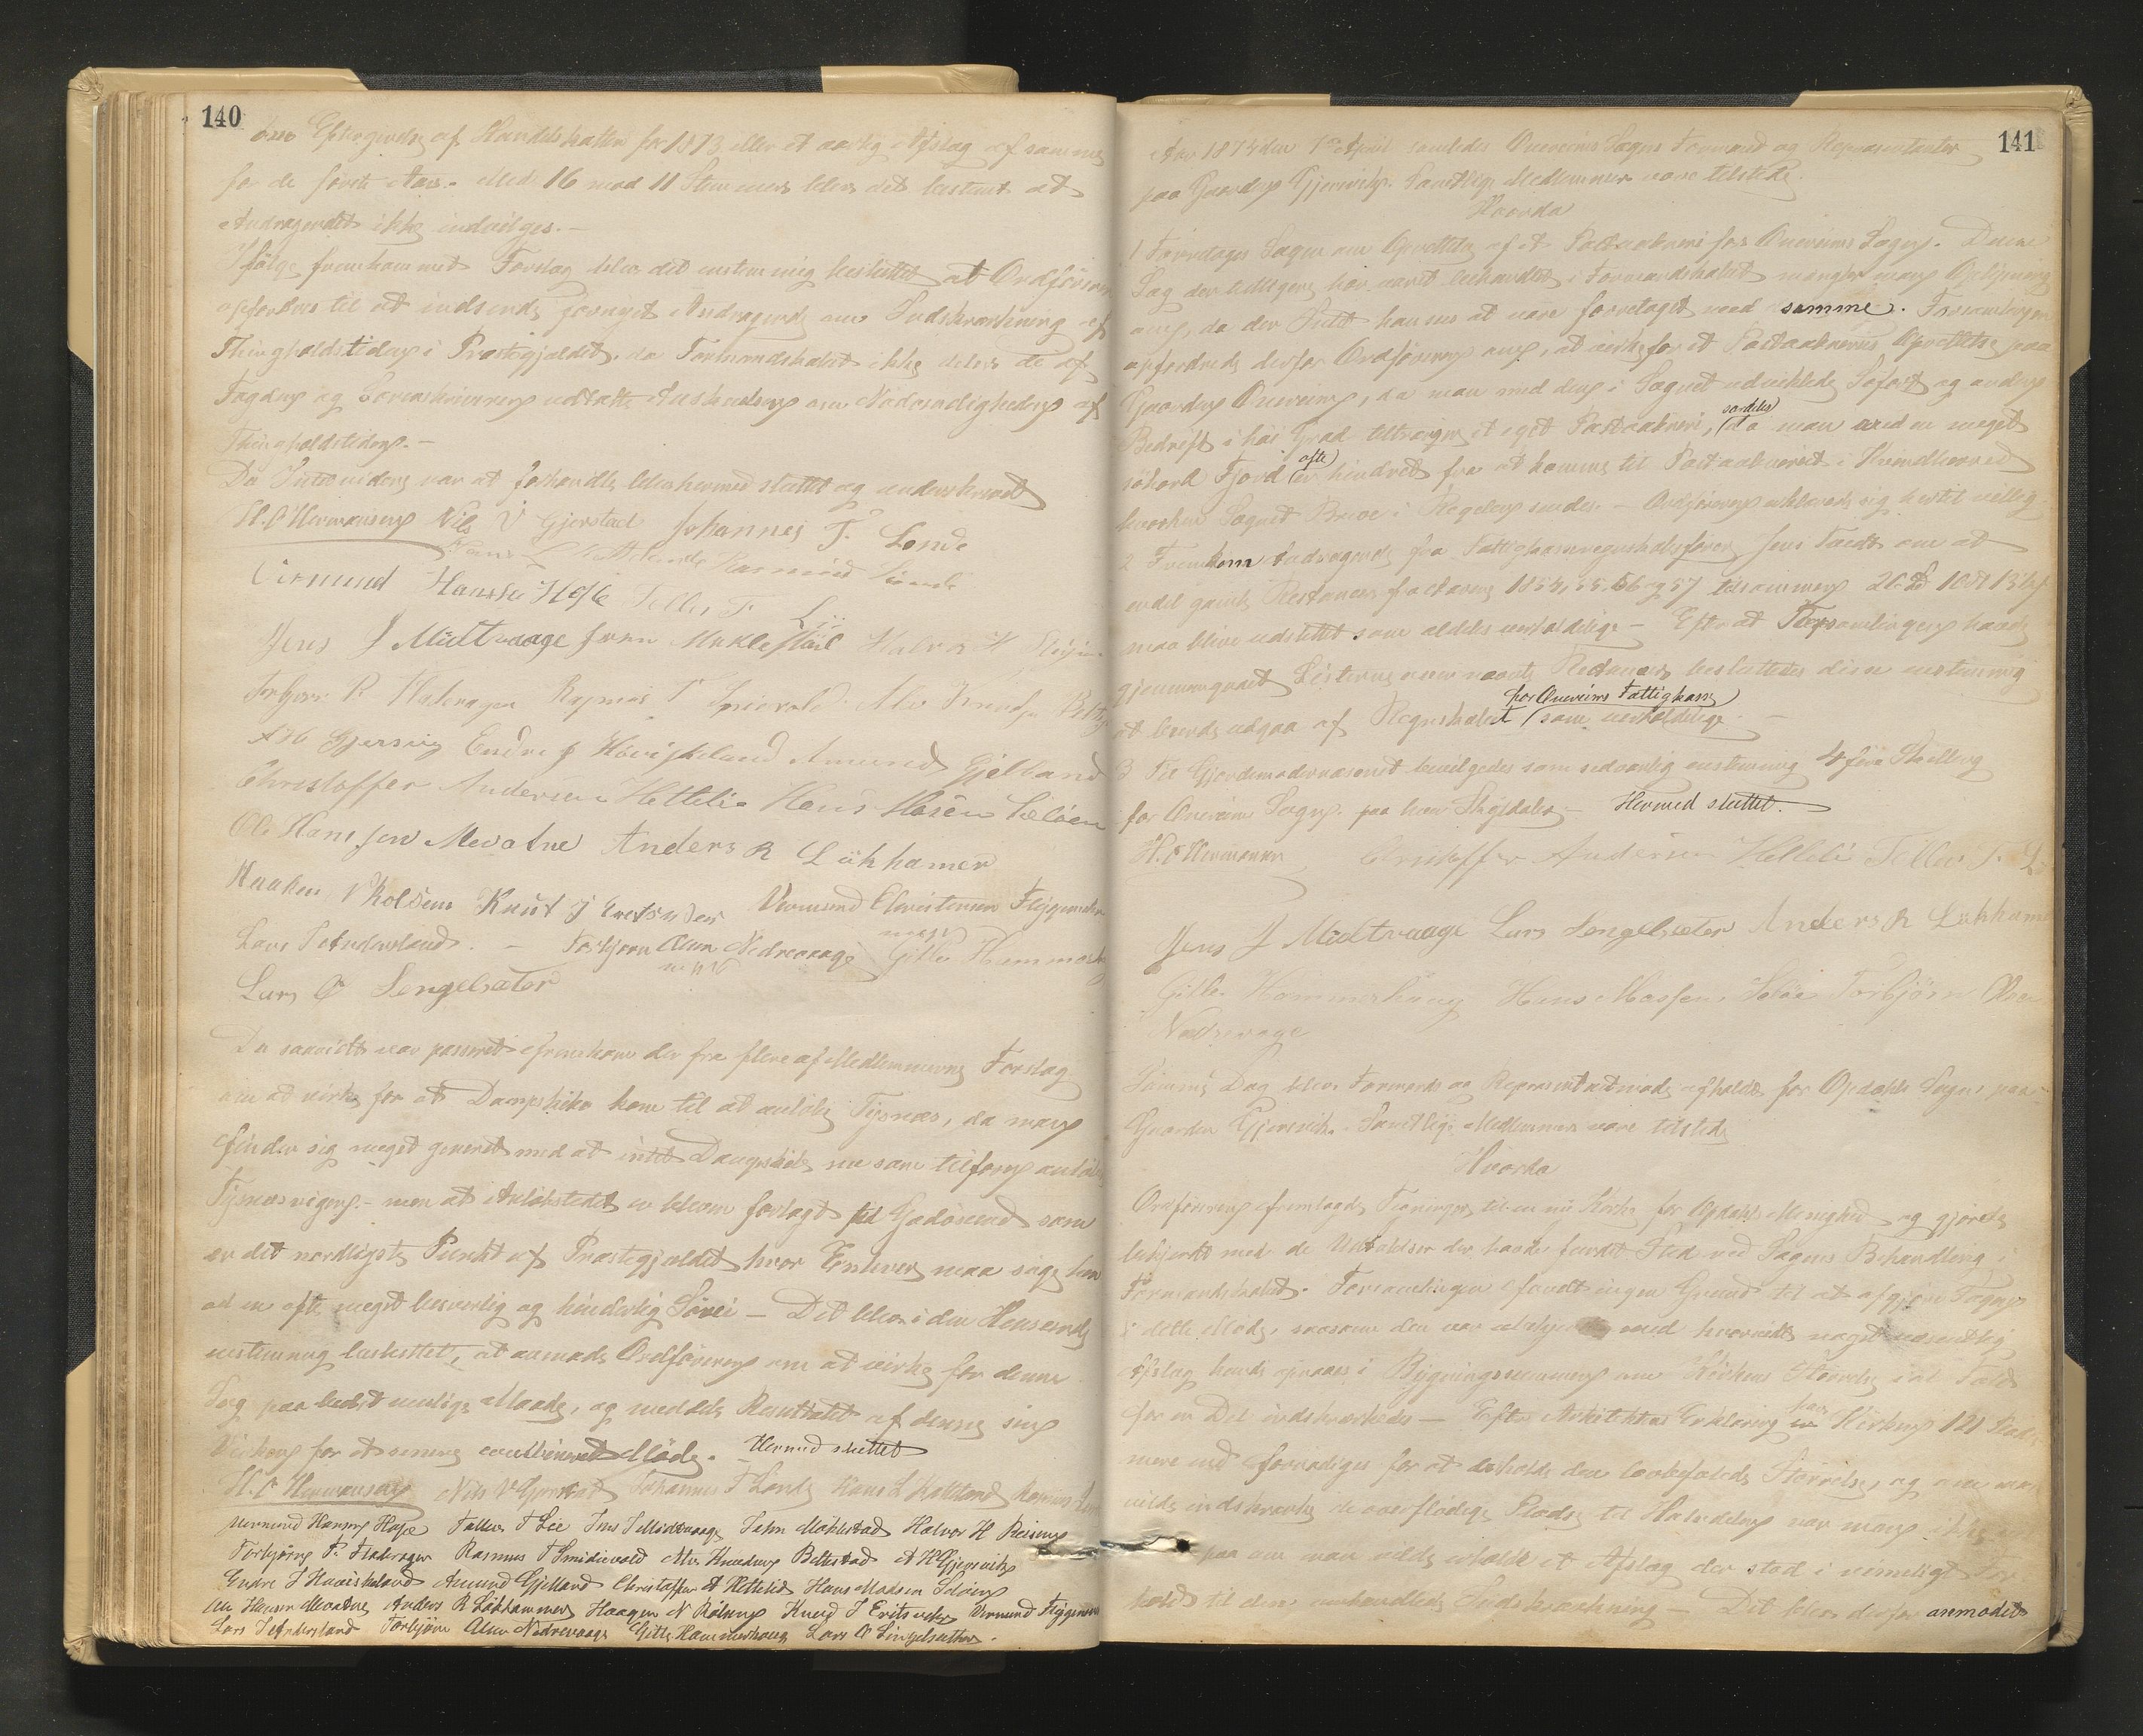 140
om Eftergivelse af Handelsskatten for 1873 eller et aarlig Afslag af samme
for de förste Aar. Med 16 mod 11 Stemmer blev det bestemt at
Andragendet ikke indvilges. -
Ifölge fremkommet Forslag blev det enstemmig besluttet at Ordföreren
opfordres til at indsende fornyet Andragende om Indskrænkning af
Thingholdstiden i Præstegjældet, da Formandskabet ikke deler de af
Fogden og Sorenskriveren udtalte Anskuelser om Nödvendigheden af
Thingholdstiden. -
Da Intet videre var at forhandle blev hermed sluttet og underskrevet
H. O Hermansen Nils V Gjerstad Johannes T. Lande
Hans L Hatteland Rasmus Lunde
Virmund Hansen Hope Tellev T. Lie
Jens J Midtvaage John Meklestad Halvor H Reisæ
Torbjörn P. Flakevagen Rasmus T Smievold Mls Knudsen Beltestad
A H Gjersvig Endre J Hoviskeland Amund Gjelland
Christoffer Andersen Hettelie Hans Madsen Seløen
Ole Hansson Mevatne Anders R Lökhamer
Haaken N Rolsem Knut J Eretsveen Vermund Christensen Flygansvær
Lars T Anderland. - Torbjörn Olsen Nedrevaage Gitle Hammerhoug
Lars O Lengelsæter
Da saavidt var passeret fremkom der fra flere af Medlemmerne Forslag
om at virke for at Dampskibe kom til at anlöbe Tysnæs, da man
finder sig meget generet med at intet Dampskib nu som tilforn anlöber
Tysnæsvigen, - men at Anlöbstedet er bleven forlagt til Godösund som
er det nordligste Punkt af Præstegjældet hvor Enhver maa söge hen
ad en ofte meget besværlig og hinderlig Sövei - Det blev i den Henseende
enstemmig besluttet, at anmode Ordföreren om at virke for denne
Sag paa bedst mulige Maade, og meddele Resultatet af denne sin
Virken for et senere combineret Möde. - Hermed sluttet
H. O Hermansen Nils V Gjerstad Johannes T Lande Hans L Hatteland Rasmus Lunde
Vermund Hansen Hope Tellev T Lie Jens J Midtvaage John Meklestad Halvor H Reisæ
Torbjörn P. Flakevagen Rasmus T Smidievold Mls Knudsen Beltestad A H Gjersvik
Endre J Hoviskeland Amund Gjelland Christoffer A Hettelid Hans Madsen Selöen
Ole Hansen Mevatne Anders R Lökhammer Haagen N Rölsem Knud J Eritsveen Vermund Flygansvær
Lars T Anderland Torbjörn Olsen Nedrevaage Gitle Hammerhoug Lars O Lengelsæther.
141
Aar 1874 den 7de April samledes Onereims Sogns Formænd og Repræsentanter
paa Gaarden Gjersvik. Samtlige Medlemmer vare tilstede.
Hvorda
1 Foretoges Sagen om Oprettelse af et Postaabneri for Onereims Sogn. Denne
Sag der tidligere har været behandlet i Formandskabet mangler man Oplysning
om, da der Intet kan sees at være foretaget med samme. Forsamlingen
opfordrede derfor Ordföreren om, at virke for et Postaabneries Oprettelse paa
Gaarden Onereim, da man med den i Sognet udviklede Söfart og anden
Bedrift i höi Grad tiltrænger et eget Postaabneri, særdeles da man ved en meget
söhard Fjord ofte er hindret fra at komme til Postaabneriet i Kvindherred
hvorhen Sognets Breve i Regelen sendes. - Ordföreren erklærede sig hertil villig.
2 Fremkom Andragende fra Fattigkasseregnskabsförer Jens Tvedt om at
endel gamle Restancer fra Aarene 1854, 55, 56 og 57 tilsammen 26 Spd 10 ß 13 sk
maa blive udslettet som aldeles uerholdelige - Efter at Forsamlingen havde
gjennemgaaet Listerne over nævnte Restancer besluttedes disse enstemmig
at burde udgaa af Regnskabet for Onereims Fattigkasse som uerholdelige. -
3 Til Gjordemodervæsenet bevilgedes som sedvanlig enstemmig 4 fire Skilling
for Onereims Sogn. paa hver Skyldaler. - Hermed sluttet.
H. O Hermansen Christoffer Andersen Hettelie Tellev T. L
Jens J Midtvaage Lars Lengelsæter Anders R Lökhame
Gitle Hammerhoug Hans Madsen Seløe Torbjörn Olsen
Nedrevaage
Samme Dag blev Formands og Repræsentantmöde afholdt for Opdahls Sogn paa
Gaarden Gjersvik. Samtlige Medlemmer vare tilstede
Hvorda
Ordföreren fremlagde Tegninger til en ny Kirke for Opdahls Menighed og gjorde
bekjendt med de Udtalelser der havde fundet Sted ved Sagens Behandling i
Formandskabet. Forsamlingen fandt ingen Grund til at afgjöre Sagen
i dette Möde, saasom den var ubekjendt med hvorvidt noget væsentlig
Afslag kunde opnaaes i Bygningssummen om Kirkens Störrelse i al Fald
for en Del indskrænkedes - Efter Arkitektens Erklæring har Kirken 121 Pladse
mere end fornödiges for at erholde den lovbefalede Störrelse, og om man
vilde indskrænke de overflödige Pladse til Halvdelen var man ikke
paa om man vilde erholde et Afslag der stod i rimeligt For-
hold til den omhandlede Indskrænkning - Det blev derfor anmodet